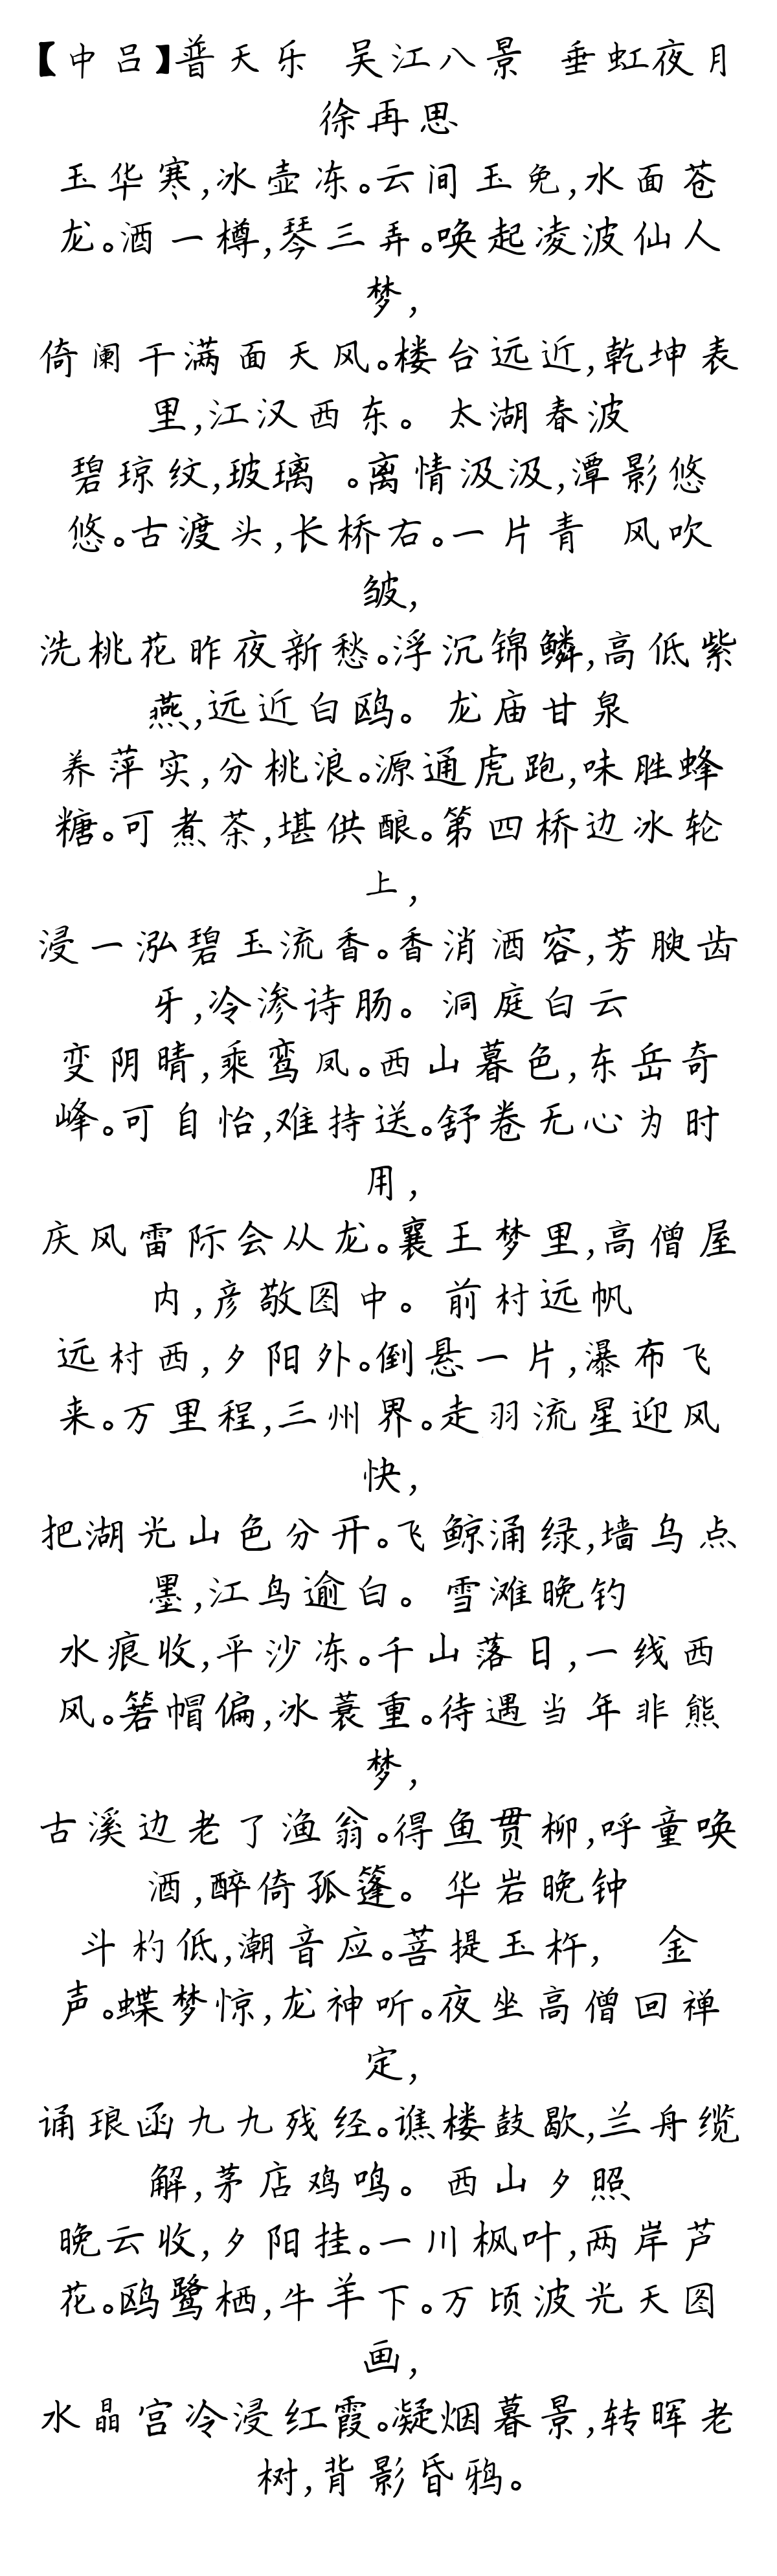 【中吕】普天乐 吴江八景 垂虹夜月
徐再思
玉华寒,冰壶冻。云间玉兔,水面苍
龙。酒一樽,琴三弄。唤起凌波仙人
梦,
倚阑干满面天风。楼台远近,乾坤表
里,江汉西东。 太湖春波
碧琼纹,玻璃 。离情汲汲,潭影悠
悠。古渡头,长桥右。一片青 风吹
皱,
洗桃花昨夜新愁。浮沉锦鳞,高低紫
燕,远近白鸥。 龙庙甘泉
养萍实,分桃浪。源通虎跑,味胜蜂
糖。可煮茶,堪供酿。第四桥边冰轮
上,
浸一泓碧玉流香。香消酒容,芳腴齿
牙,冷渗诗肠。 洞庭白云
变阴晴,乘鸾凤。西山暮色,东岳奇
峰。可自怡,难持送。舒卷无心为时
用,
庆风雷际会从龙。襄王梦里,高僧屋
内,彦敬图中。 前村远帆
远村西,夕阳外。倒悬一片,瀑布飞
来。万里程,三州界。走羽流星迎风
快,
把湖光山色分开。飞鲸涌绿,墙乌点
墨,江鸟逾白。 雪滩晚钓
水痕收,平沙冻。千山落日,一线西
风。箬帽偏,冰蓑重。待遇当年非熊
梦,
古溪边老了渔翁。得鱼贯柳,呼童唤
酒,醉倚孤篷。 华岩晚钟
斗杓低,潮音应。菩提玉杵, 金
声。蝶梦惊,龙神听。夜坐高僧回禅
定,
诵琅函九九残经。谯楼鼓歇,兰舟缆
解,茅店鸡鸣。 西山夕照
晚云收,夕阳挂。一川枫叶,两岸芦
花。鸥鹭栖,牛羊下。万顷波光天图
画,
水晶宫冷浸红霞。凝烟暮景,转晖老
树,背影昏鸦。